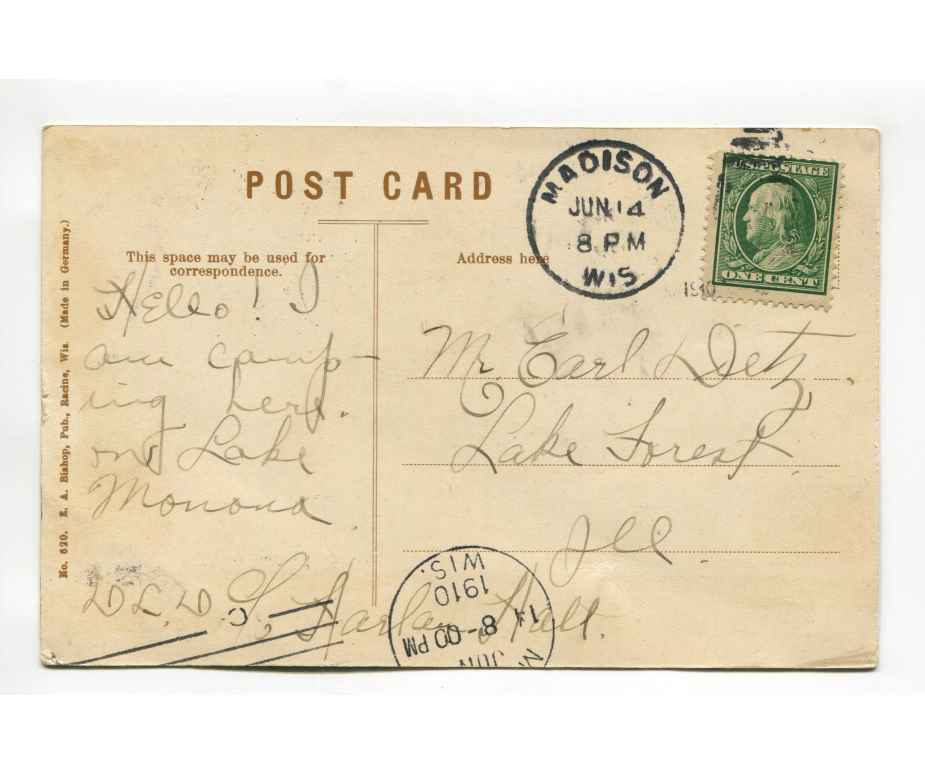 POST CARD
This space may be used for
correspondence.
Address here
MADISON
JUN 14
8 PM
WIS
1910
U.S. POSTAGE
ONE CENT
No. 620. E. A. Bishop, Pub., Racine, Wis. (Made in Germany.)
Hello! I
am camp-
ing here
on Lake
Monona
Harlan Hall.
Mr Earl Dietz,
Lake Forest
Ill
WIS.
1910
8-00 PM
14
JUN